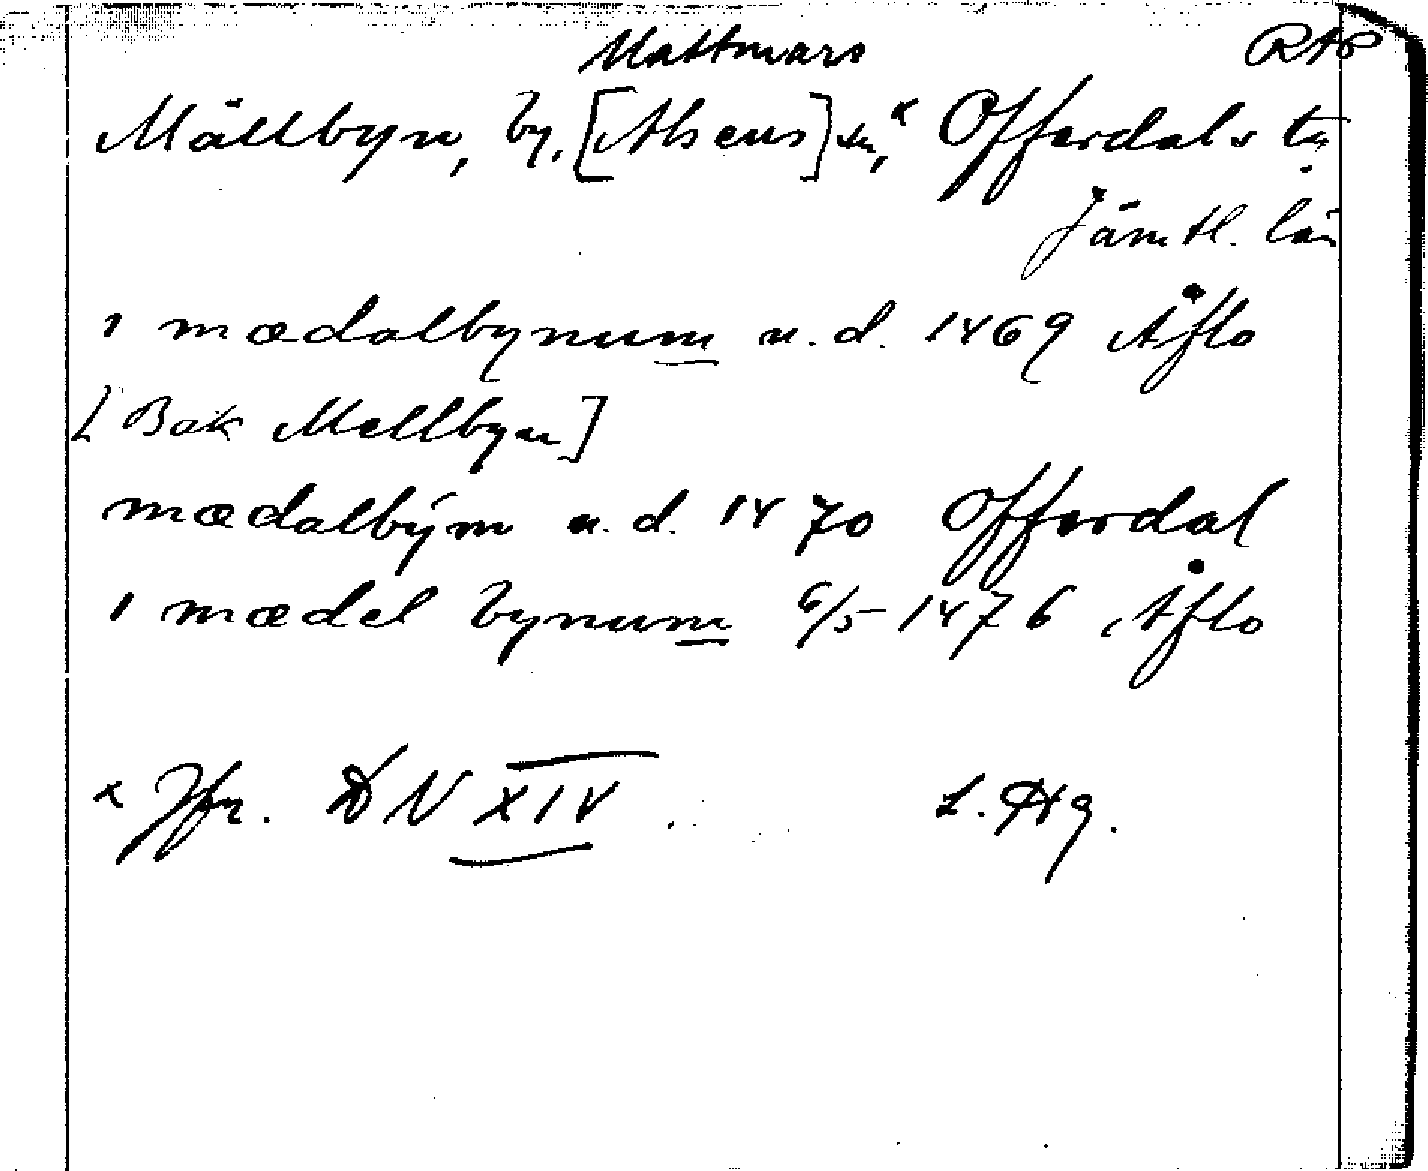 Mattmars RAP
Mällbyn, by, [Alsens] sn,x Offerdals tg
Jämtl. län
i mædalbynum u.d. 1469 Åflo
[Bak Mellbyn]
mædalbým u.d. 1470 Offerdal
i mædel bynum 6/5 1476 Åflo
x Jfr. DN XIV L. Hg.